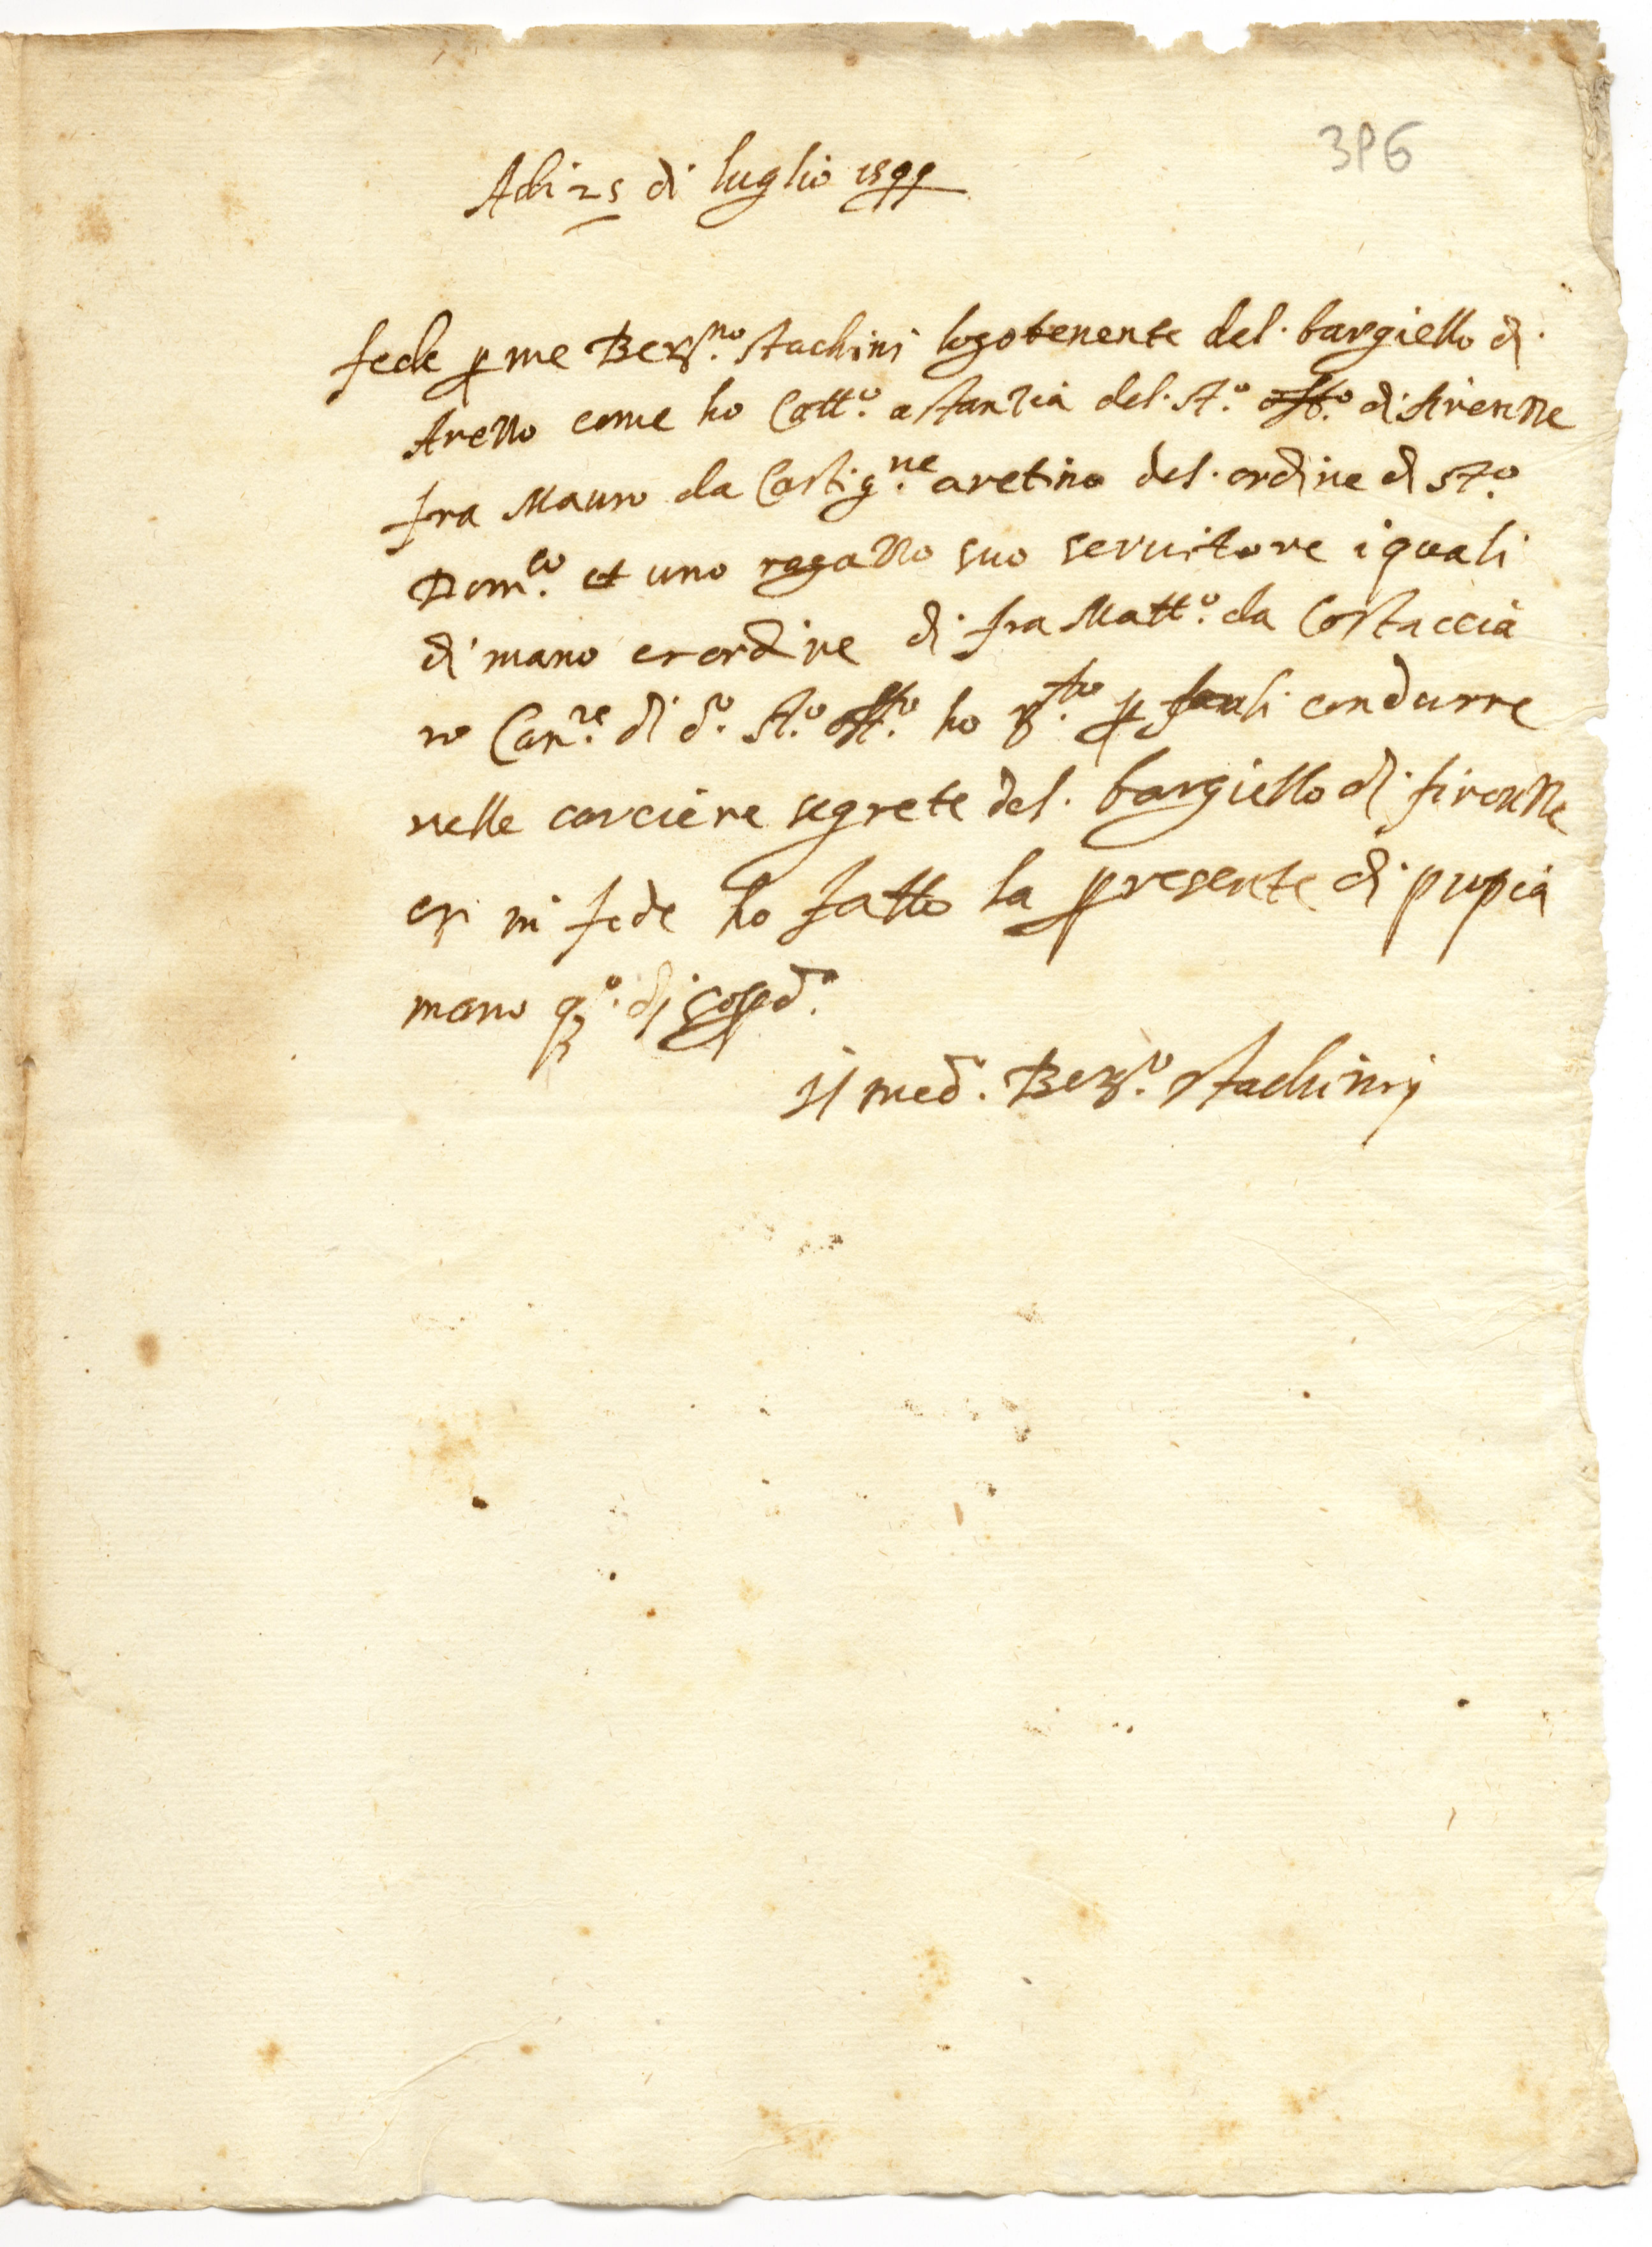 396
Adi 25 di luglio 1599
fede p me Ber.no stachini logotenente del bargiello di
Arezzo come ho Catt.o astanzia del St.o offt.o di firenze
fra Mauro da Castig.ne aretino del ordine di St.o
Dom.co et uno ragazzo suo servitore i quali
di mano et ordine di fra Matt.o da Costaccia
ro Can.re di d.o St.o offt.o ho p farli condurre
nelle carciere segrete del bargiello di firenze
et in fede ho fatto la presente di pupia
mano q.o di sopd.o
il med. Ber.o stachini